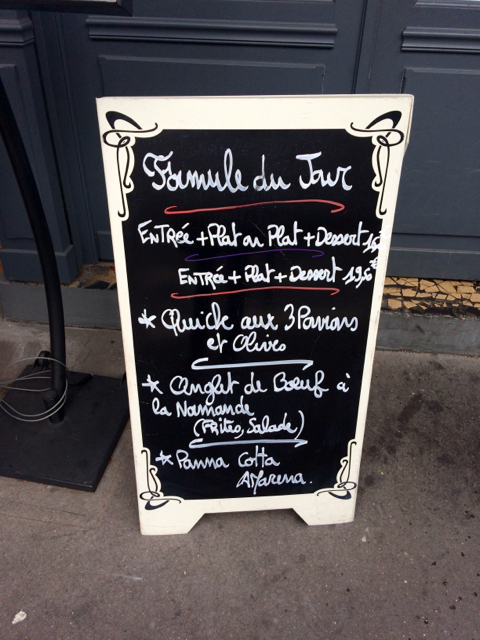 Formule du Jour
Entrée + Plat ou Plat + Dessert 15€
Entrée + Plat + Dessert 19,50
* Quiche aux 3 Poivrons
et Olives
* Onglet de Boeuf à
la Normande
(Frites, Salade)
* Panna Cotta
Amarena.